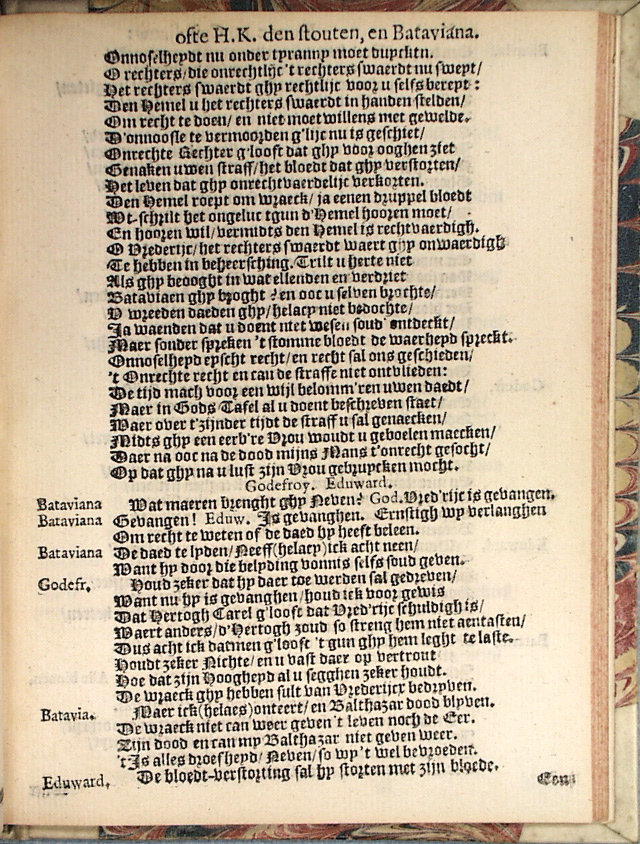 ofte H.K. den stouten, en Bataviana.
Onnoselheydt nu onder tyranny moet duycktn.
O rechters/die onrechtlijc 't rechters swaerdt nu swept/
Het rechters swaerdt ghy rechtlijc voor u selfs berept:
Den Hemel u het rechters swaerdt in handen stelden/
Om recht te doen/ en niet moetwillens met gewelde.
D'onnoosle te vermoorden g'lijc nu is geschiet/
Onrechte Rechter g'looft dat ghy voor ooghen ziet
Genaken uwen straff/het bloedt dat ghy verstorten/
Het leven dat ghy onrechtvaerdelijc verkorten.
Den Hemel roept om wraeck/ ja eenen druppel bloedt
Wt-schrilt het ongeluc tgun d'Hemel hooren moet/
En hooren wil/vermidts den Hemel is rechtvaerdigh.
O Vrederijc/het rechters swaerdt waert ghy onwaerdigh
Te hebben in beheersching. Trilt u herte niet
Als ghy beooght in wat ellenden en verdriet
Bataviaen ghy broght? en ooc u selven brochte/
D wreeden daeden ghy/helacy niet bedochte/
Ja waenden dat u doent niet wesen soud' ontdeckt/
Maer sonder spreken 't stomme bloedt de waerheyd spreckt.
Onnoselheyd eyscht recht/en recht sal ons geschieden/
't Onrechte recht en can de straffe niet ontvlieden:
De tijd mach voor een wijl belomm'ren uwen daedt/
Maer in Gods Tafel al u doent beschreven staet/
Maer over t'zijnder tijdt de straff u sal genaecken/
Midts ghy een eerb're Vrou woudt u geboelen maecken/
Daer na ooc na de dood mijns Mans t'onrecht gesocht/
Op dat ghy na u lust zijn Vrou gebruycken mocht.
Godefroy. Eduward.
Bataviana Wat maeren brenght ghy Neven? God. Vred'rijc is gevangen.
Bataviana Gevangen! Eduw. Is gevanghen. Ernstigh wy verlanghen
Om recht te weten of de daed hy heeft beleen.
Bataviana De daed te lyden/Neeff(helacy)ick acht neen/
Want hy door die belyding vonnis selfs soud geven.
Godefr. Houd zeker dat hy daer toe werden sal gedreven/
Want nu hy is gevanghen/houd ick voor gewis
Dat Hertogh Carel g'looft dat Vred'rijc schuldigh is/
Waert anders/d'Hertogh zoud so streng hem niet aentasten/
Dus acht ick datmen g'looft 't gun ghy hem leght te laste.
Houdt zeker Nichte/en u vast daer op vertrout
Hoe dat zijn Hoogheyd al u segghen zeker houdt.
De wraeck ghy hebben sult van Vrederijcx bedryven.
Batavia. Maer ick(helaes)onteert/en Balthazar dood blyven.
De wraeck niet can weer geven't leven noch de Eer.
Zijn dood en can my Balthazar niet geven weer.
't Is alles droefheyd/Neven/so wy't wel bevroeden.
Eduward. De bloedt-verstorting sal hy storten met zijn bloede.
Een